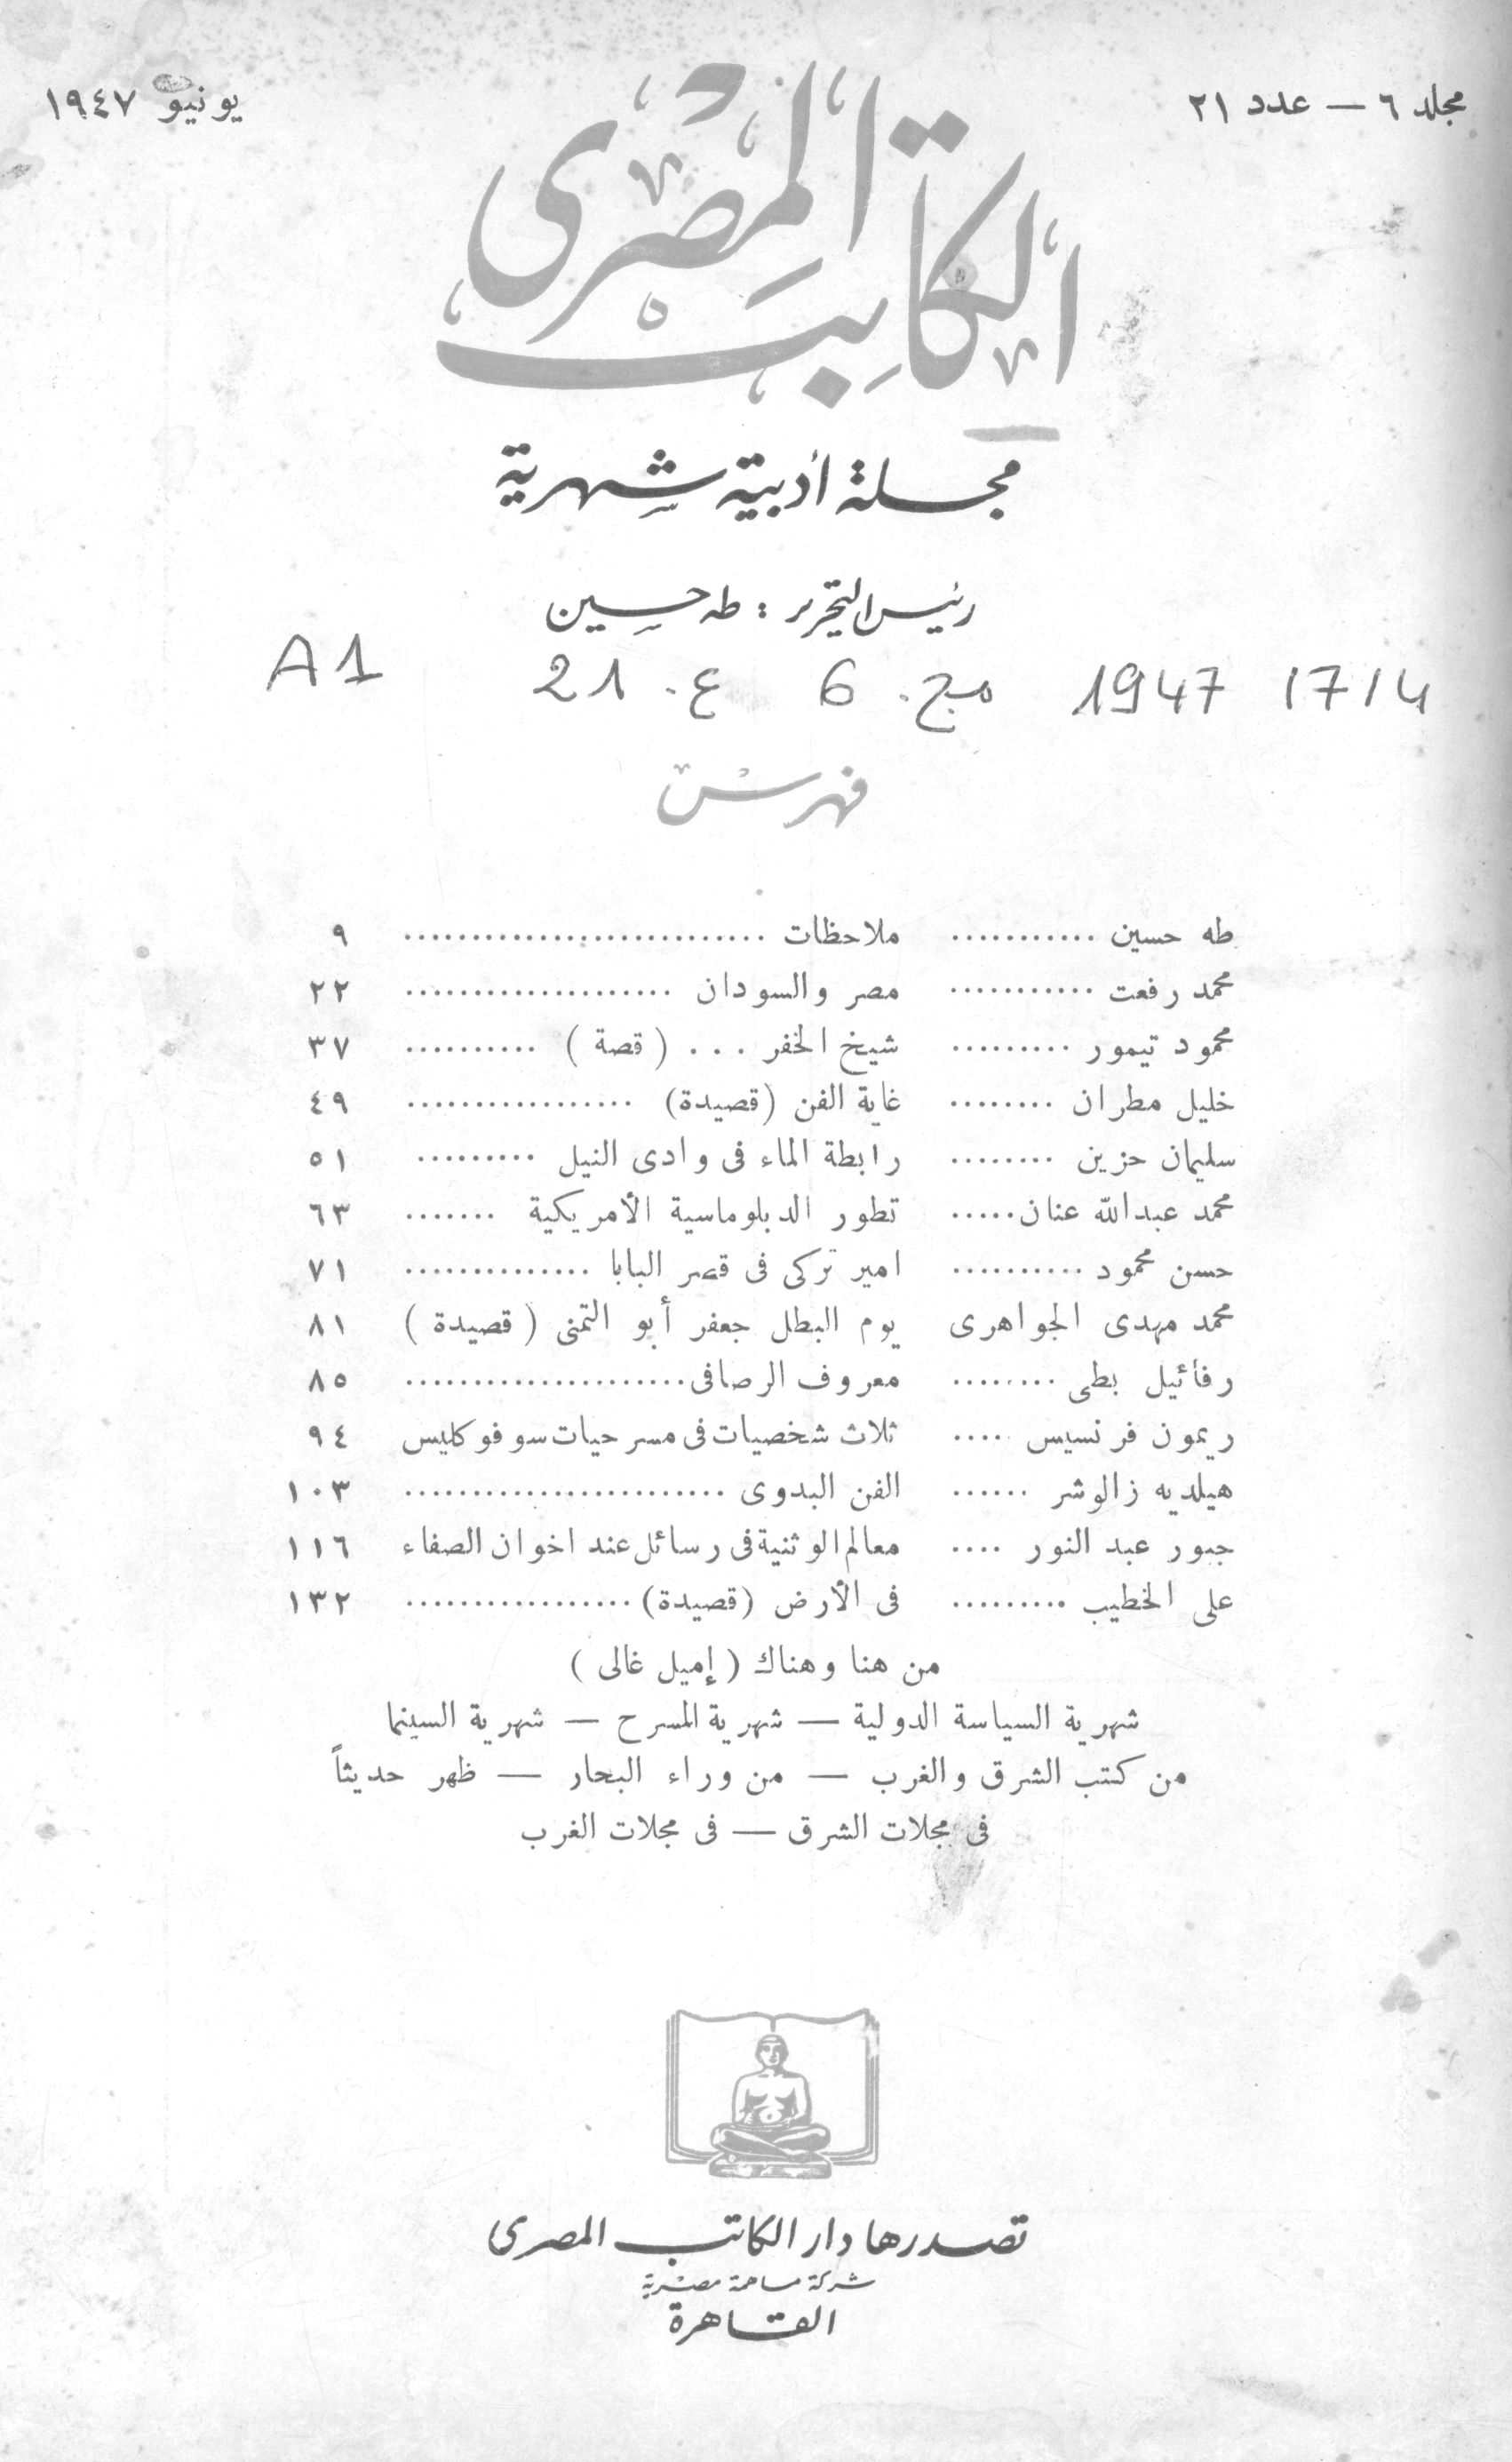 مجلد ٦ — عدد ٢١
يونيو ١٩٤٧
الكاتب المصرى
مجلة أدبية شهرية
رئيس التحرير : طه حسين
1714 1947 مج. 6 ع. 21 A1
فهرس
طه حسين ........... ملاحظات ........................... ٩
محمد رفعت ........... مصر والسودان .................... ٢٢
محمود تيمور ......... شيخ الخفر ... ( قصة ) .......... ٣٧
خليل مطران ........ غاية الفن (قصيدة) ................. ٤٩
سليمان حزين ........ رابطة الماء فى وادى النيل ......... ٥١
محمد عبد الله عنان ..... تطور الدبلوماسية الأمريكية ....... ٦٣
حسن محمود .......... امير تركى فى قصر البابا .............. ٧١
محمد مهدى الجواهرى يوم البطل جعفر أبو التمنى ( قصيدة ) ٨١
رفائيل بطى ........ معروف الرصافى ..................... ٨٥
ريمون فرنسيس .... ثلاث شخصيات فى مسرحيات سوفوكليس ٩٤
هيلديه زالوشر ...... الفن البدوى ........................ ١٠٣
جبور عبد النور .... معالم الوثنية فى رسائل عند اخوان الصفاء ١١٦
على الخطيب ......... فى الأرض (قصيدة) ................. ١٣٢
من هنا وهناك ( إميل غالى )
شهرية السياسة الدولية — شهرية المسرح — شهرية السينما
من كتب الشرق والغرب — من وراء البحار — ظهر حديثاً
فى مجلات الشرق — فى مجلات الغرب
تصدرها دار الكاتب المصرى
شركة مساهمة مصرية
القاهرة